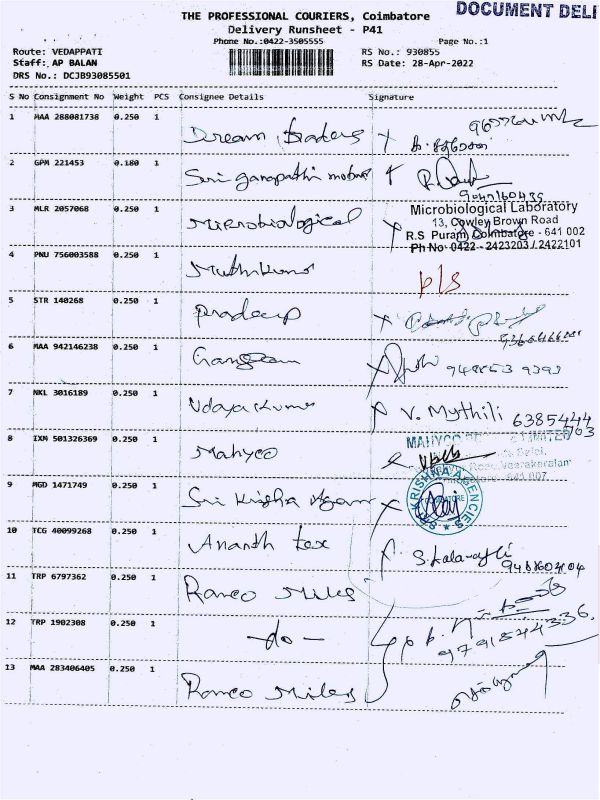 DOCUMENT DELI
THE PROFESSIONAL COURIERS, Coimbatore
Delivery Runsheet - P41
Phone No.:0422-3505555 Page No.:1
Route: VEDAPPATI RS No.: 930855
Staff: AP BALAN RS Date: 28-Apr-2022
DRS No.: DCJB93085501
S No Consignment No Weight PCS Consignee Details Signature
1 MAA 288081738 0.250 1 Dream traders
2 GPM 221453 0.180 1 Suri ganapathi motors
3 MLR 2057068 0.250 1 Microbiological
Microbiological Laboratory
13, Cowley Brown Road
R.S Puram, Coimbatore - 641 002
Ph No: 0422 - 2423203 / 2422101
4 PNU 756003588 0.250 1 Muthukumar
5 STR 140268 0.250 1 Pradeep
6 MAA 942146238 0.250 1
7 NKL 3016189 0.250 1 Udaya Kumar V. Mythili
8 IXM 501326369 0.250 1 Mahyco
9 MGD 1471749 0.250 1 Sri Krisha Agen
SRI KRISHNA AGENCIES
10 TCG 40099268 0.250 1 Ananth tex
11 TRP 6797362 0.250 1 Ramco Miles
12 TRP 1902308 0.250 1 -do- 9791544336
13 MAA 283406405 0.250 1 Ramco Miles